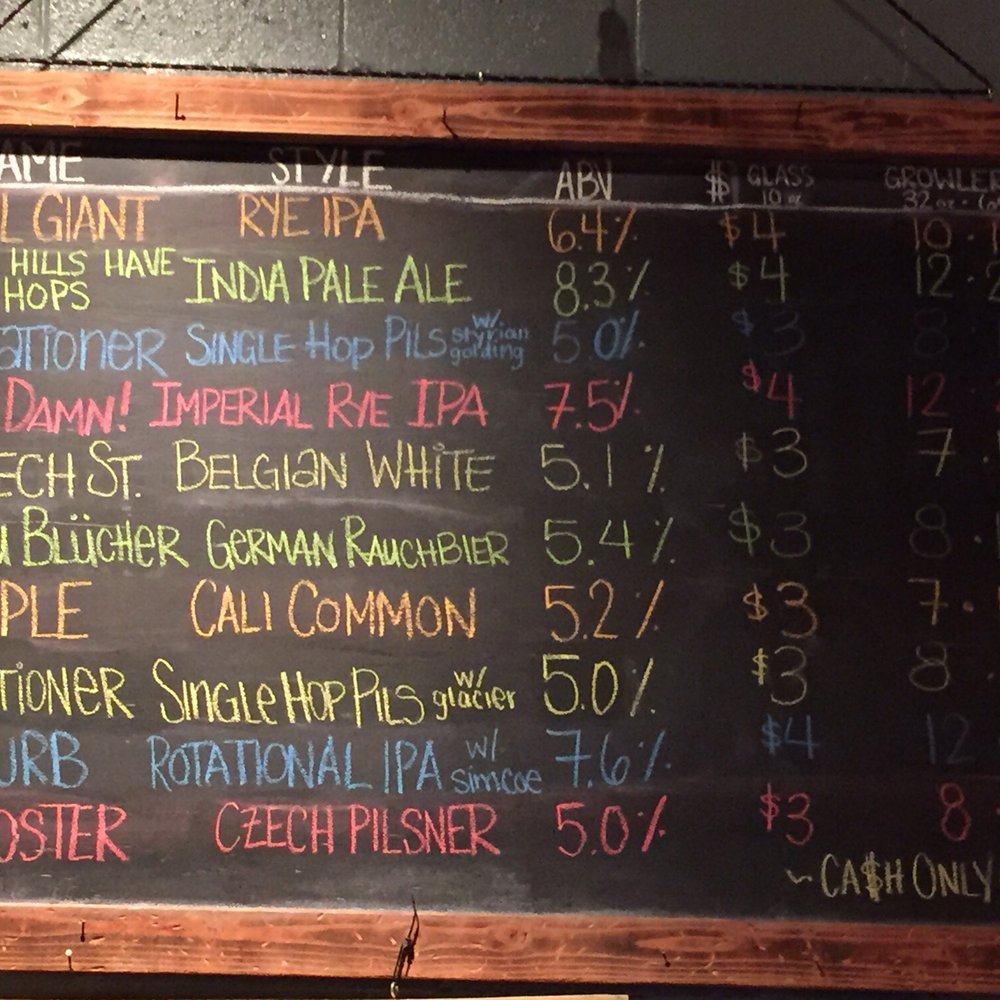 AME STYLE ABV $ GLASS GROWLER
10 oz 32 oz
L GIANT RYE IPA 6.4% $4 10
HILLS HAVE
HOPS INDIA PALE ALE 8.3% $4 12 · 2
ATIONER SINGLE HOP PILS w/ styrian golding 5.0% $3 8
DAMN! IMPERIAL RYE IPA 7.5% $4 12
ECH ST. BELGIAN WHITE 5.1% $3 7 ·
U BLÜCHER GERMAN RAUCHBIER 5.4% $3 8 ·
PLE CALI COMMON 5.2% $3 7 ·
TIONER SINGLE HOP PILS w/ glacier 5.0% $3 8 ·
URB ROTATIONAL IPA w/ simcoe 7.6% $4 12
OSTER CZECH PILSNER 5.0% $3 8
~ CA$H ONLY